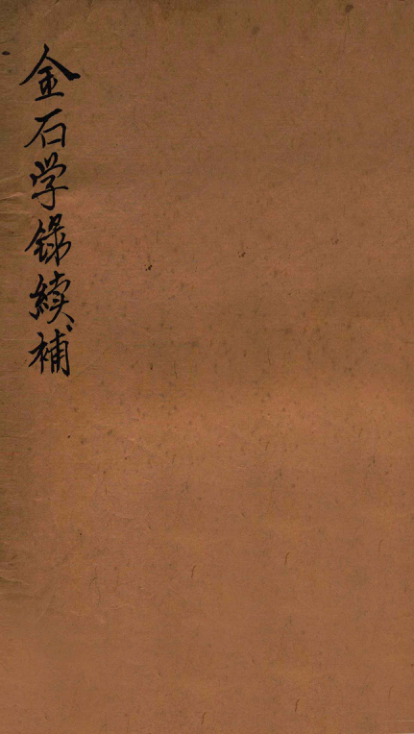 金石学錄續補